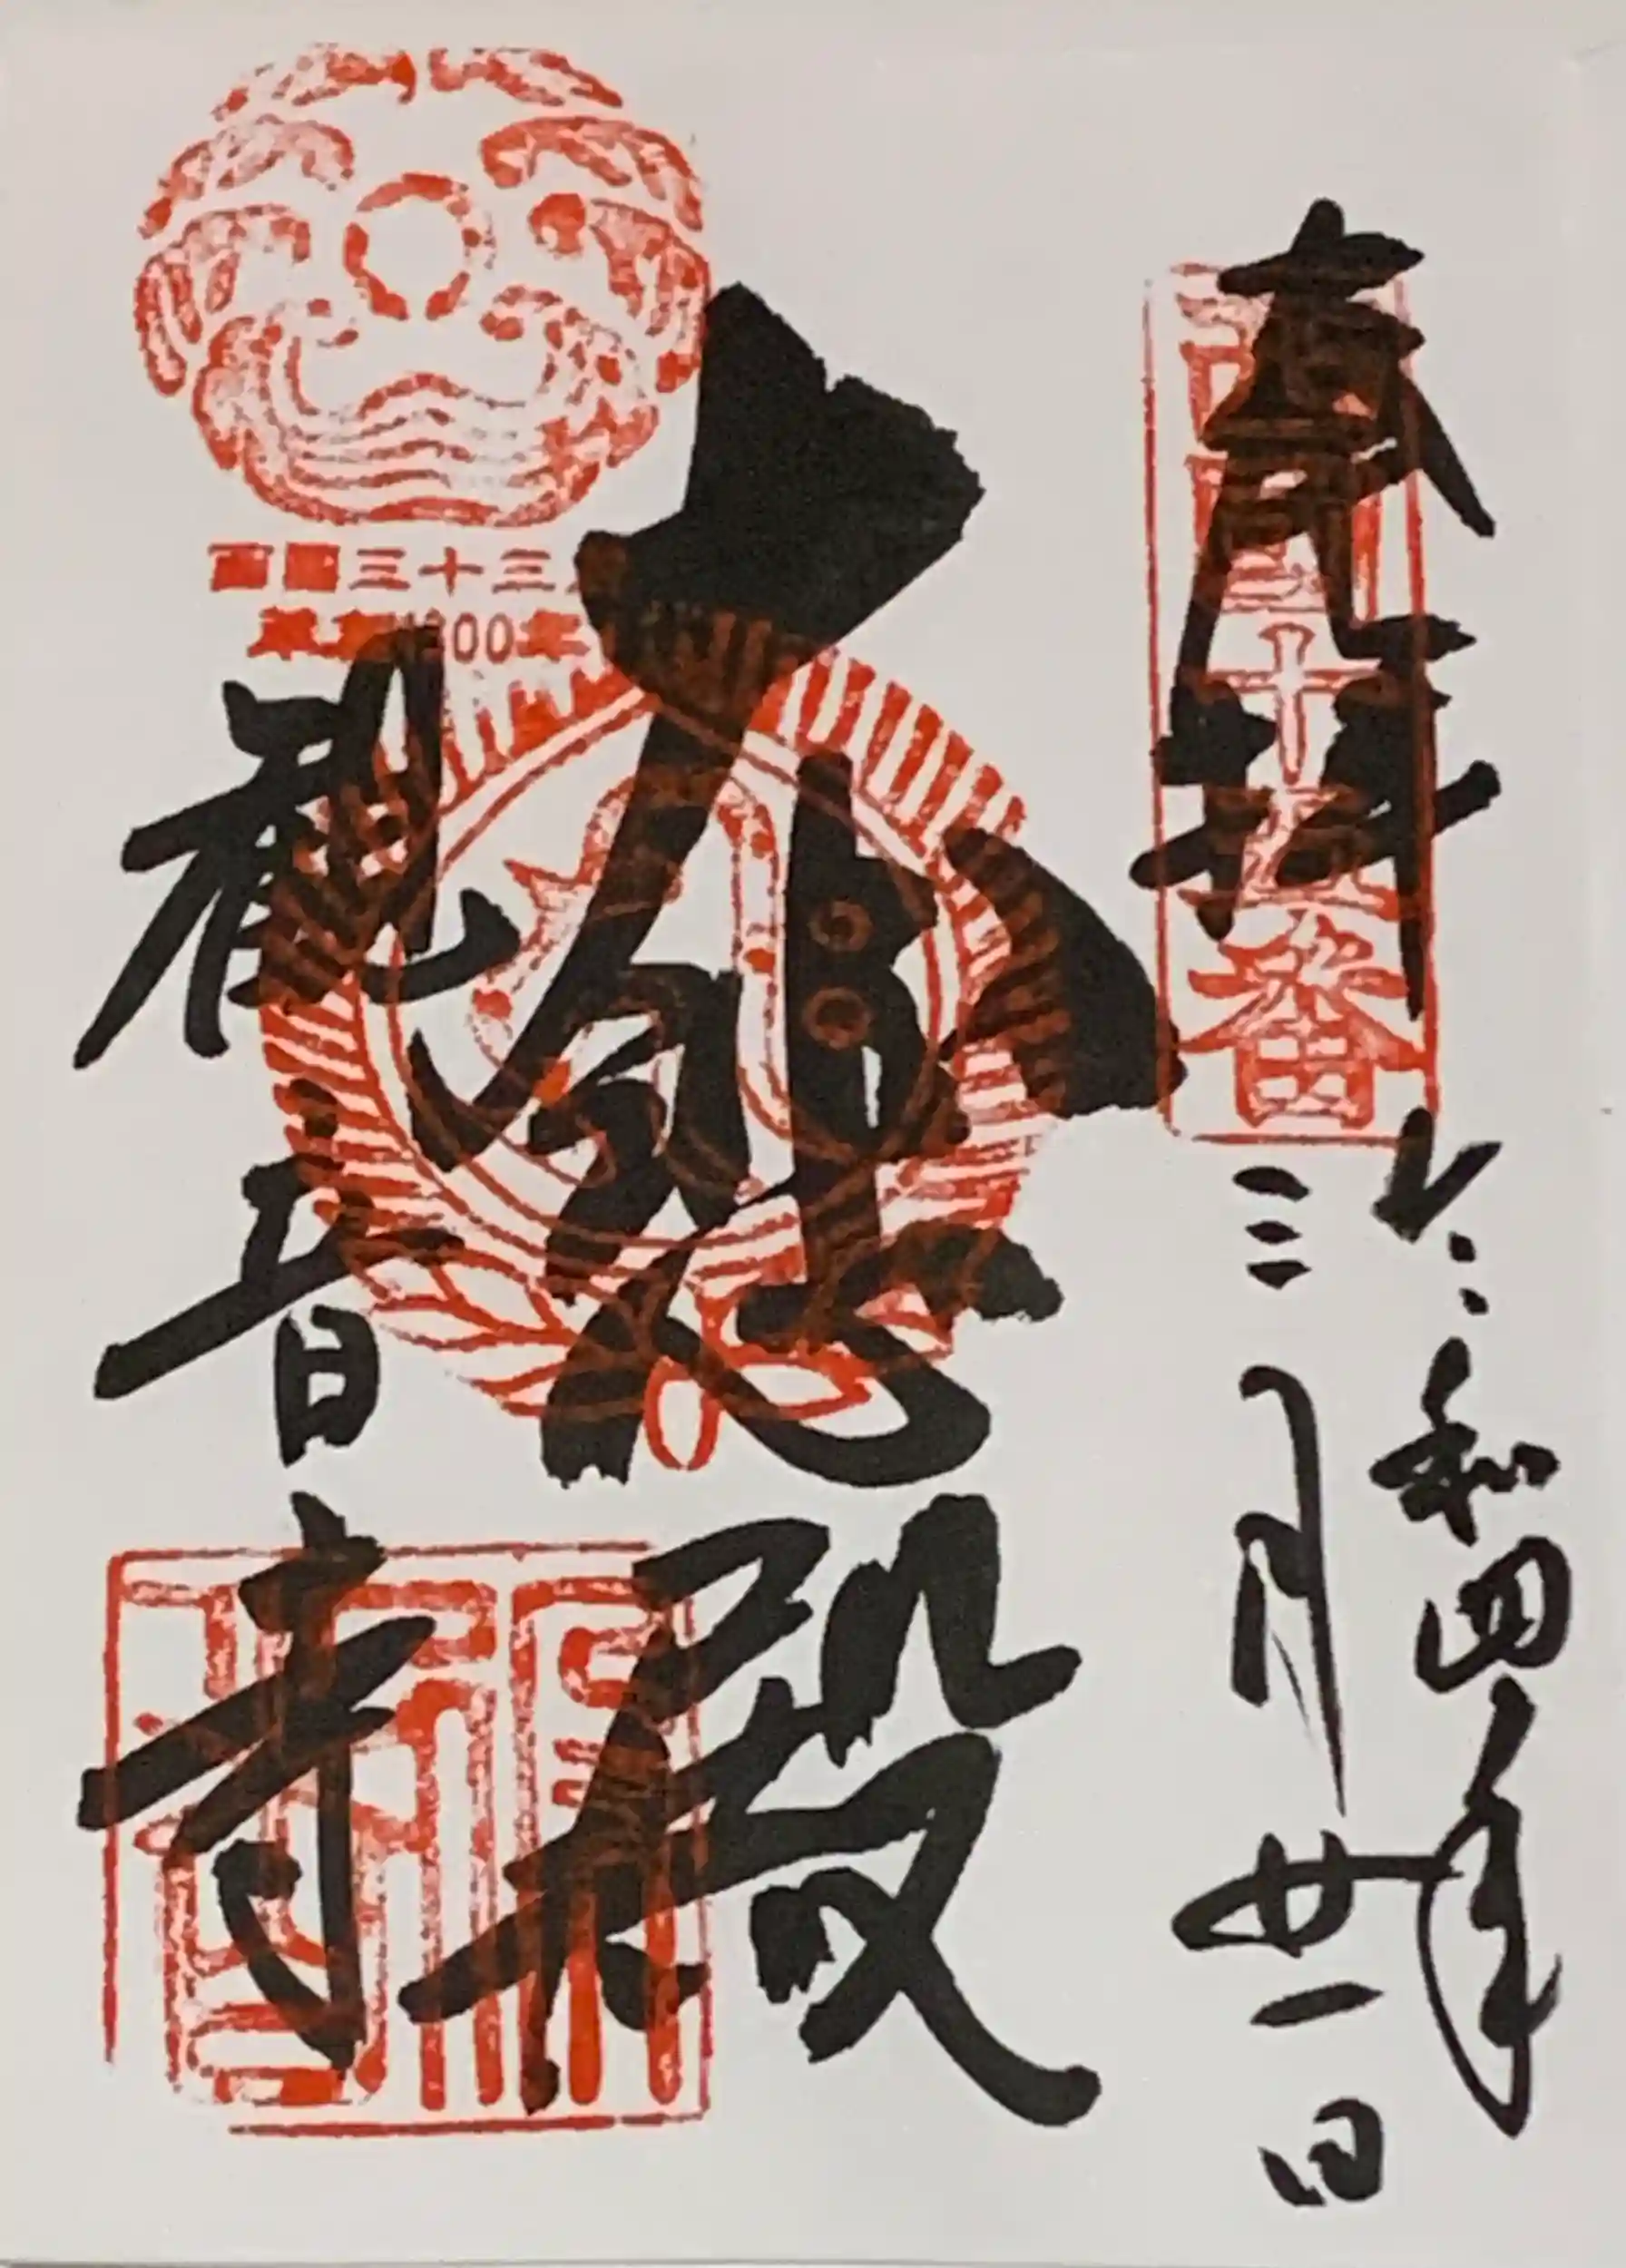 奉拝
西國十五番
令和四年
三月廿一日
大悲殿
觀音寺
西国三十三所
草創1300年